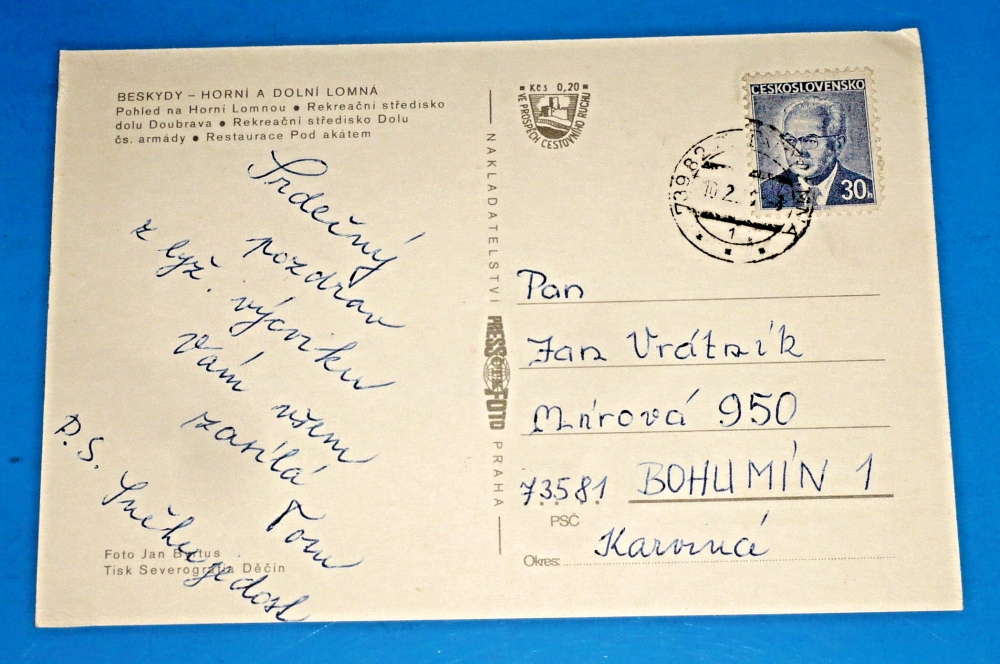 BESKYDY – HORNÍ A DOLNÍ LOMNÁ
Pohled na Horní Lomnou ● Rekreační středisko
dolu Doubrava ● Rekreační středisko Dolu
čs. armády ● Restaurace Pod akátem
Srdečný
pozdrav
z lyž. výcviku
Vám všem
zasílá
Tom
P.S. Sněhu je dost
Foto Jan
Tisk Severografia Děčín
NAKLADATELSTVÍ PRESSFOTO PRAHA
Kčs 0,20
VE PROSPĚCH CESTOVNÍHO RUCHU
ČESKOSLOVENSKO
30h
73982
10.2.
1
Pan
Jan Vrátník
Mírová 950
73581 BOHUMÍN 1
PSČ
Okres: Karviná